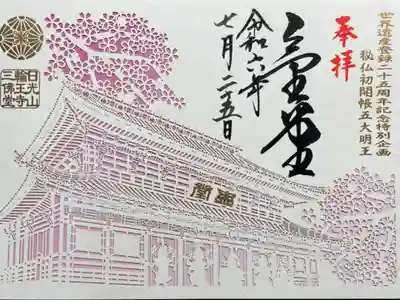 世界遺産登録二十五周年記念特別企画
秘仏初開帳五大明王
奉拝
令和六年
七月二五日
日光山
輪王寺
三佛堂